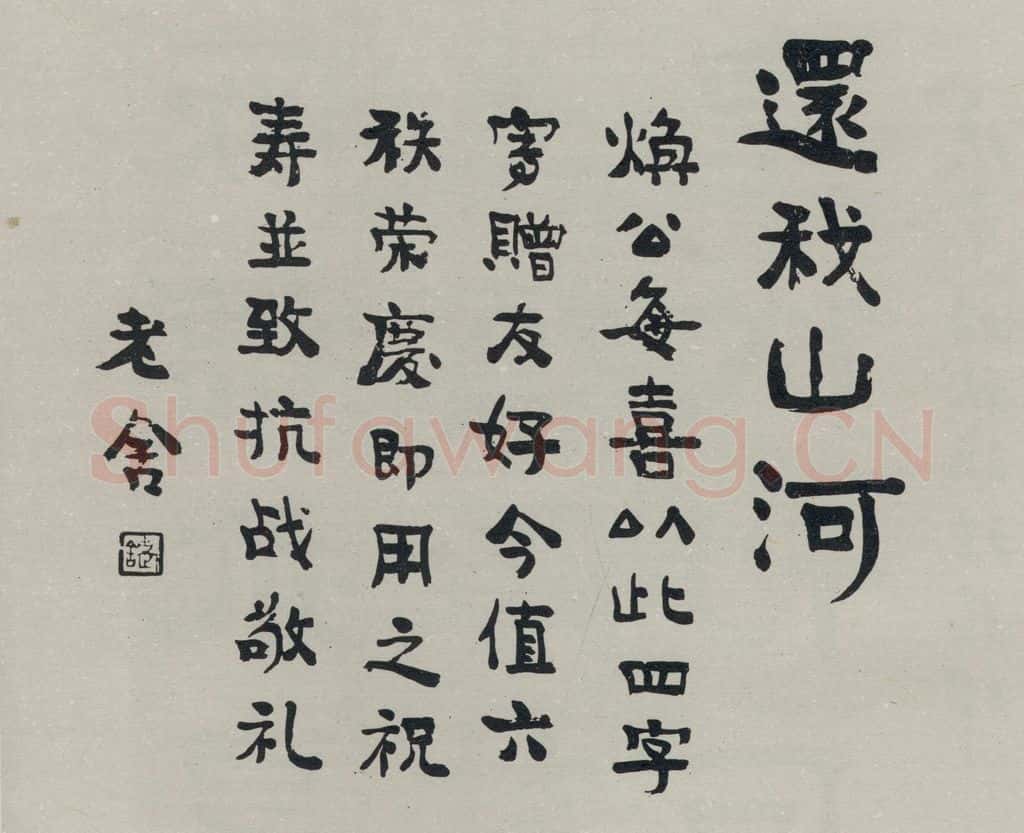 還我山河
煥公每喜以此四字
寫贈友好今值六
秩荣慶即用之祝
寿並致抗战敬礼
老舍
Shufawang.CN